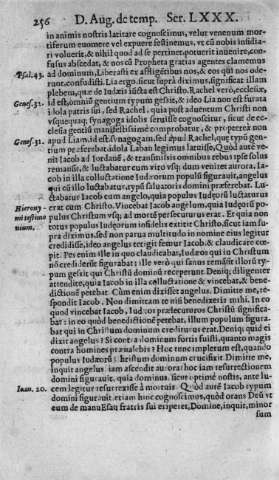 256 D. Aug. de temp. Ser. LXXX.
in animis nostris latitare cognoscimus, velut venenum mor-
tiferum euomere vel expuere festinemus, vt cũ nobis insidia-
ri voluerit, & nihil quod ad se pertinet, potuerit inuenire, con-
fusus abscedat, & nos cũ Propheta gratias agentes clamemus
Psal. 43. ad dominum, Liberasti ex affligentibus nos, & eos qui nos ode-
runt, confudisti. Lia ergo, sicut supra diximus, significauit illam
plebem, quæ de Iudæis iuncta est Christo. Rachel verò, ecclesiæ,
Genes. 31. id est, omniũ gentium typum gessit, & ideo Lia non est furata
idola patris sui, sed Rachel. quia post aduentum Christi non
vsquequaq; synagoga idolis seruisse cognoscitur, sicut de ec-
clesia gentiũ manifestissimè comprobatur, & propterea non
Genes. 31. apud Liam, id est, synagogam, sed apud Rachel, quæ typũ gen-
tium præferebat, idola Laban legimus latuisse, Quòd autē ve-
nit Iacob ad Iordanē, & transmissis omnibus rebus ipse solus
remansit, & luctabatur cum viro vsq; dum veniret aurora. Ia-
cob in illa colluctatione Iudæorum populũ figurauit, angelus
qui cũ illo luctabatur, typũ saluatoris domini præferebat. Lu-
ctabatur Iacob cum angelo, quia populus Iudæorũ luctaturus
Hierony- erat cum Christo. Vincebat Iacob angelum, quia Iudæorũ po-
pulus Christum vsq; ad mortē persecuturus erat. Et quia non
totus populus Iudæorum infidelis extitit Christo, sicut iam su-
pra diximus, sed non parua multitudo in nomine eius legitur
credidisse, ideo angelus tetigit femur Iacob, & claudicare cœ-
pit. Pes enim ille in quo claudicabat, Iudæos qui in Christum
nō crediderunt figurabat: ille verò qui sanus remāsit illorũ ty-
pum gessit, qui Christũ dominũ receperunt. Deniq; diligenter
attendite, quia Iacob in illa colluctatione & vincebat, & bene-
dictionē petebat. Cùm enim dixisset angelus, Dimitte me, re-
spondit Iacob. Non dimittam te nisi benedixeris mihi. In eo
quod vincebat Iacob, Iudæos persecuturos Christũ significa-
bat: in eo quòd benedictionē petebat, illum populum figura-
bat qui in Christum dominum crediturus erat. Deniq; quid ei
dixit angelus? Si contra dominum fortis fuisti, quanto magis
contra homines præualebis? Hoc tunc impletum est, quando
populus Iudæorũ Christum dominum crucifixit. Dimitte me,
inquit angelus iam ascendit aurora: hoc iam resurrectionem
domini figurauit, quia dominus, sicut optimè nostis, ante lu-
Ioan. 20. cem legitur resurrexisse à mortuis. Quòd autē Iacob typum
domini figurauit, etiam hinc cognoscimus, quòd orans Deũ vt
eum de manu Esau fratris sui eriperet, Domine, inquit, minor
sum